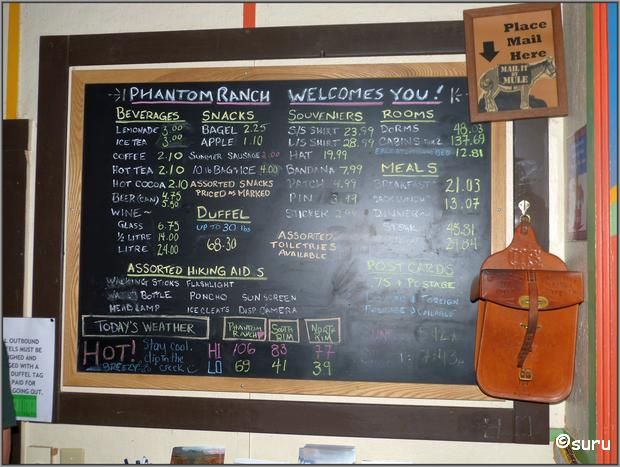 Place
Mail
Here
MAIL IT
BY
MULE
PHANTOM RANCH WELCOMES YOU!
BEVERAGES
LEMONADE 3.00
ICE TEA 3.00
COFFEE 2.10
HOT TEA 2.10
HOT COCOA 2.10
BEER (CAN)
WINE~
GLASS 6.75
1/2 LITRE 14.00
LITRE 24.00
SNACKS
BAGEL 2.25
APPLE 1.10
SUMMER SAUSAGE
10 lb BAG ICE 4.00
ASSORTED SNACKS
PRICED AS MARKED
DUFFEL
UP TO 30 lbs
68.30
SOUVENIERS
S/S SHIRT 23.99
L/S SHIRT 28.99
HAT 19.99
BANDANA 7.99
PATCH 4.99
PIN 3.99
STICKER
ASSORTED
TOILETRIES
AVAILABLE
ROOMS
DORMS 43.03
CABINS 137.69
12.81
MEALS
BREAKFAST 21.03
13.07
DINNER~
STEAK
POST CARDS
.75 + POSTAGE
FOREIGN
POSTAGE AVAILABLE
ASSORTED HIKING AIDS
WALKING STICKS FLASHLIGHT
WATER BOTTLE PONCHO SUNSCREEN
HEADLAMP ICE CLEATS DISP. CAMERA
TODAY'S WEATHER
PHANTOM
RANCH
SOUTH
RIM
NORTH
RIM
HOT!
BREEZY
Stay cool,
dip in the
creek
HI 106 83 77
LO 69 41 39
OUTBOUND
MUST BE
AND
WITH A
DUFFEL TAG
PAID FOR
GOING OUT.
©suru